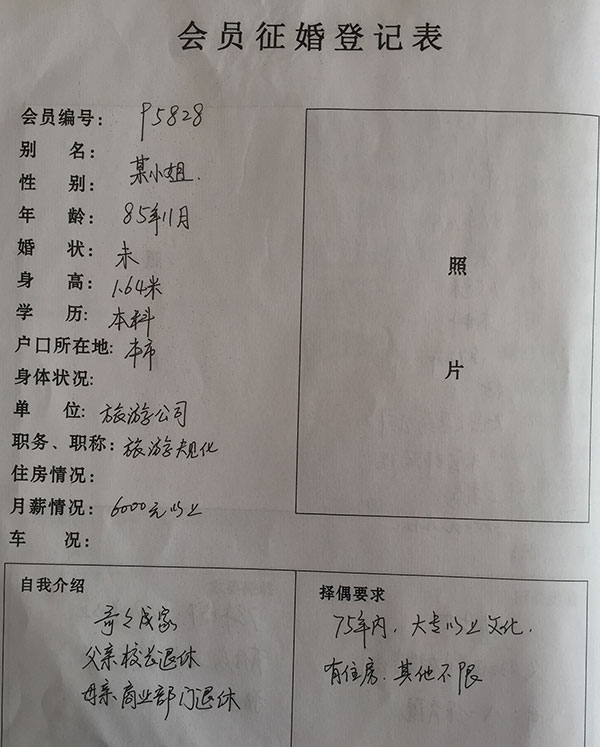 会员征婚登记表
会员编号: P5828
别 名:
性 别: 某小姐.
年 龄: 85年11月
婚 状: 未
身 高: 1.64米
学 历: 本科
户口所在地: 本市
身体状况:
单 位: 旅游公司
职务、职称: 旅游规化
住房情况:
月薪情况: 6000元以上
车 况:
照
片
自我介绍
哥已成家
父亲校长退休
母亲商业部门退休
择偶要求
75年内, 大专以上文化.
有住房. 其他不限